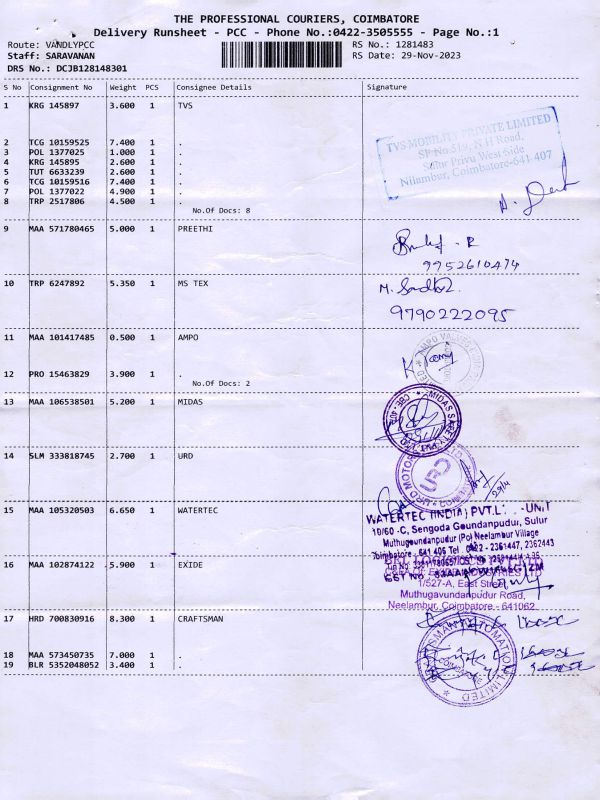 THE PROFESSIONAL COURIERS, COIMBATORE
Delivery Runsheet - PCC - Phone No.:0422-3505555 - Page No.:1
Route: VANDLYPCC
Staff: SARAVANAN
DRS No.: DCJB128148301
RS No.: 1281483
RS Date: 29-Nov-2023
S No Consignment No Weight PCS Consignee Details Signature
1 KRG 145897 3.600 1 TVS
TVS MOBILITY PRIVATE LIMITED
SF No.519, N H Road,
Sulur Privu West Side
Nilambur, Coimbatore-641 407
2 TCG 10159525 7.400 1 .
3 POL 1377025 1.000 1 .
4 KRG 145895 2.600 1 .
5 TUT 6633239 2.600 1 .
6 TCG 10159516 7.400 1 .
7 POL 1377022 4.900 1 .
8 TRP 2517806 4.500 1 .
No.Of Docs: 8
9 MAA 571780465 5.000 1 PREETHI
9952610474
10 TRP 6247892 5.350 1 MS TEX
9790222095
11 MAA 101417485 0.500 1 AMPO
12 PRO 15463829 3.900 1 .
No.Of Docs: 2
13 MAA 106538501 5.200 1 MIDAS
14 SLM 333818745 2.700 1 URD
15 MAA 105320503 6.650 1 WATERTEC
WATERTEC (INDIA) PVT.L - UNIT
10/60 -C, Sengoda Goundanpudur, Sulur
Muthugoundanpudur (Po) Neelambur Village
Coimbatore - 641 406 Tel : 0422 - 2361447, 2362443
16 MAA 102874122 5.900 1 EXIDE
1/527-A, East Street,
Muthugavundanpudur Road,
Neelambur, Coimbatore - 641062.
17 HRD 700830916 8.300 1 CRAFTSMAN
18 MAA 573450735 7.000 1 .
19 BLR 5352048052 3.400 1 .